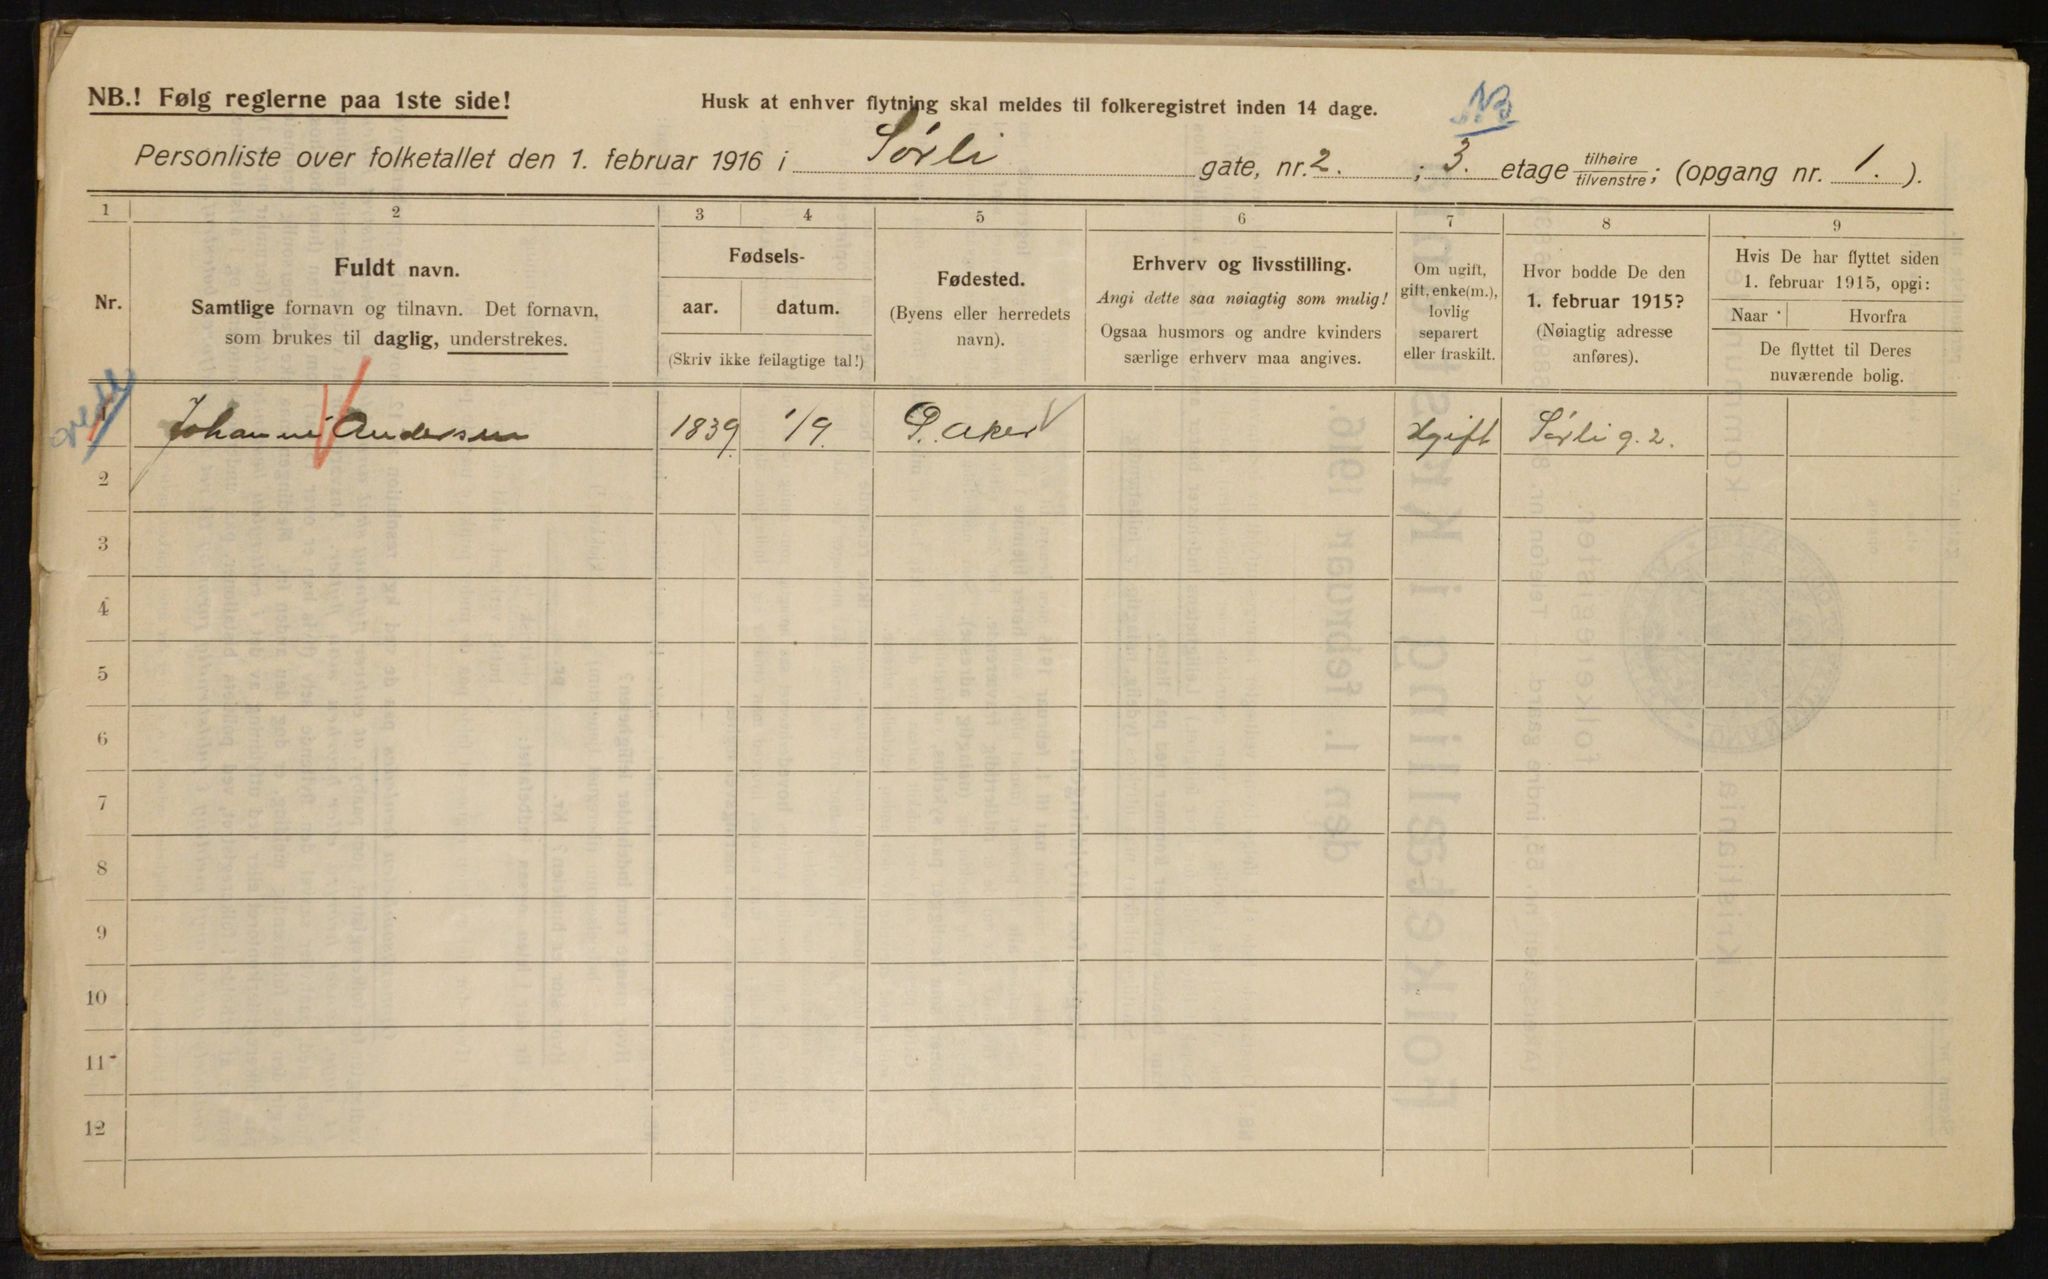 NB.! Følg reglerne paa 1ste side!
Husk at enhver flytning skal meldes til folkeregistret inden 14 dage.
NB
Personliste over folketallet den 1. februar 1916 i Sørli gate, nr. 2. ; 3. etage tilhøire tilvenstre ; (opgang nr. 1. ).
1 2 3 4 5 6 7 8 9
Nr.
Fuldt navn.
Samtlige fornavn og tilnavn. Det fornavn,
som brukes til daglig, understrekes.
Fødsels-
aar. datum.
(Skriv ikke feilagtige tal!)
Fødested.
(Byens eller herredets
navn).
Erhverv og livsstilling.
Angi dette saa nøiagtig som mulig!
Ogsaa husmors og andre kvinders
særlige erhverv maa angives.
Om ugift,
gift, enke(m.),
lovlig
separert
eller fraskilt.
Hvor bodde De den
1. februar 1915?
(Nøiagtig adresse
anføres).
Hvis De har flyttet siden
1. februar 1915, opgi:
Naar Hvorfra
De flyttet til Deres
nuværende bolig.
1 Andersen 1839 1/9. Aker Ugift Sørlig. 2.
2
3
4
5
6
7
8
9
10
11
12